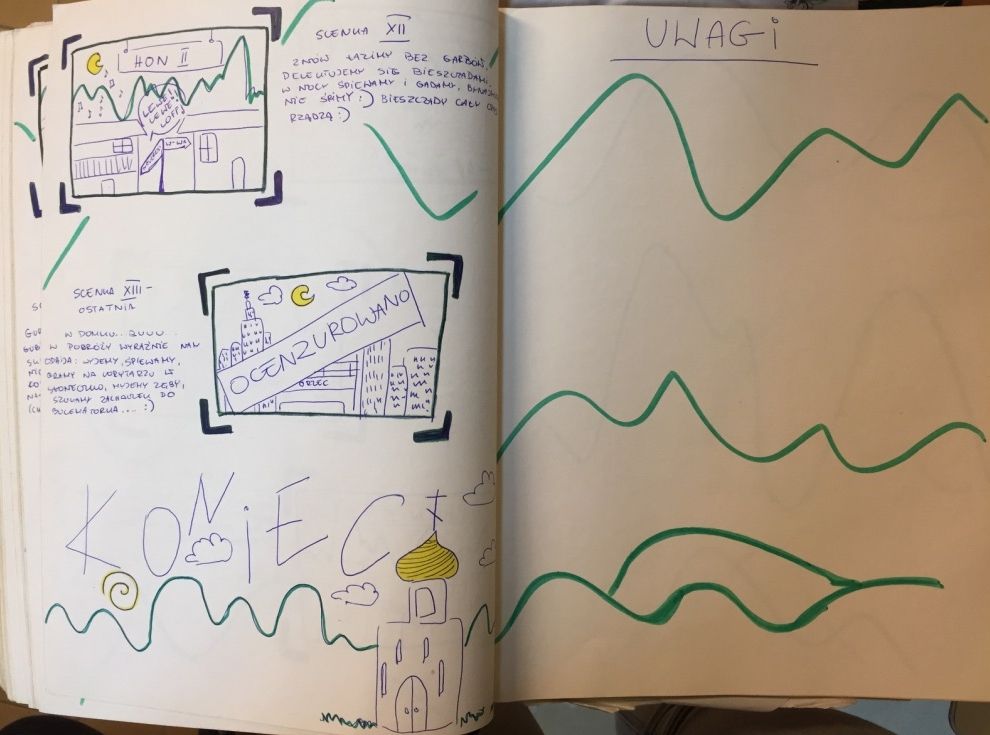 HON II
LEWE!
LEWE!
LOFF!
W-WA
SCENKA XII
ZNÓW ŁAZIMY BEZ GARBÓW,
DELEKTUJEMY SIĘ BIESZCZADAMI
W NOCY ŚPIEWAMY I GADAMY,
NIE ŚPIMY :) BIESZCZADY CAŁY
RZĄDZĄ :)
SCENKA XIII -
OSTATNIA
W DOMKU... ZUUU...
W PODRÓŻY WYRAŹNIE NAM
ODBIJA: WYJEMY, ŚPIEWAMY,
GRAMY NA KORYTARZU W
SŁONECZKO, MYJEMY ZĘBY,
SZUKAMY ZACHODEK DO
OCENZUROWANO
KONIEC
UWAGI